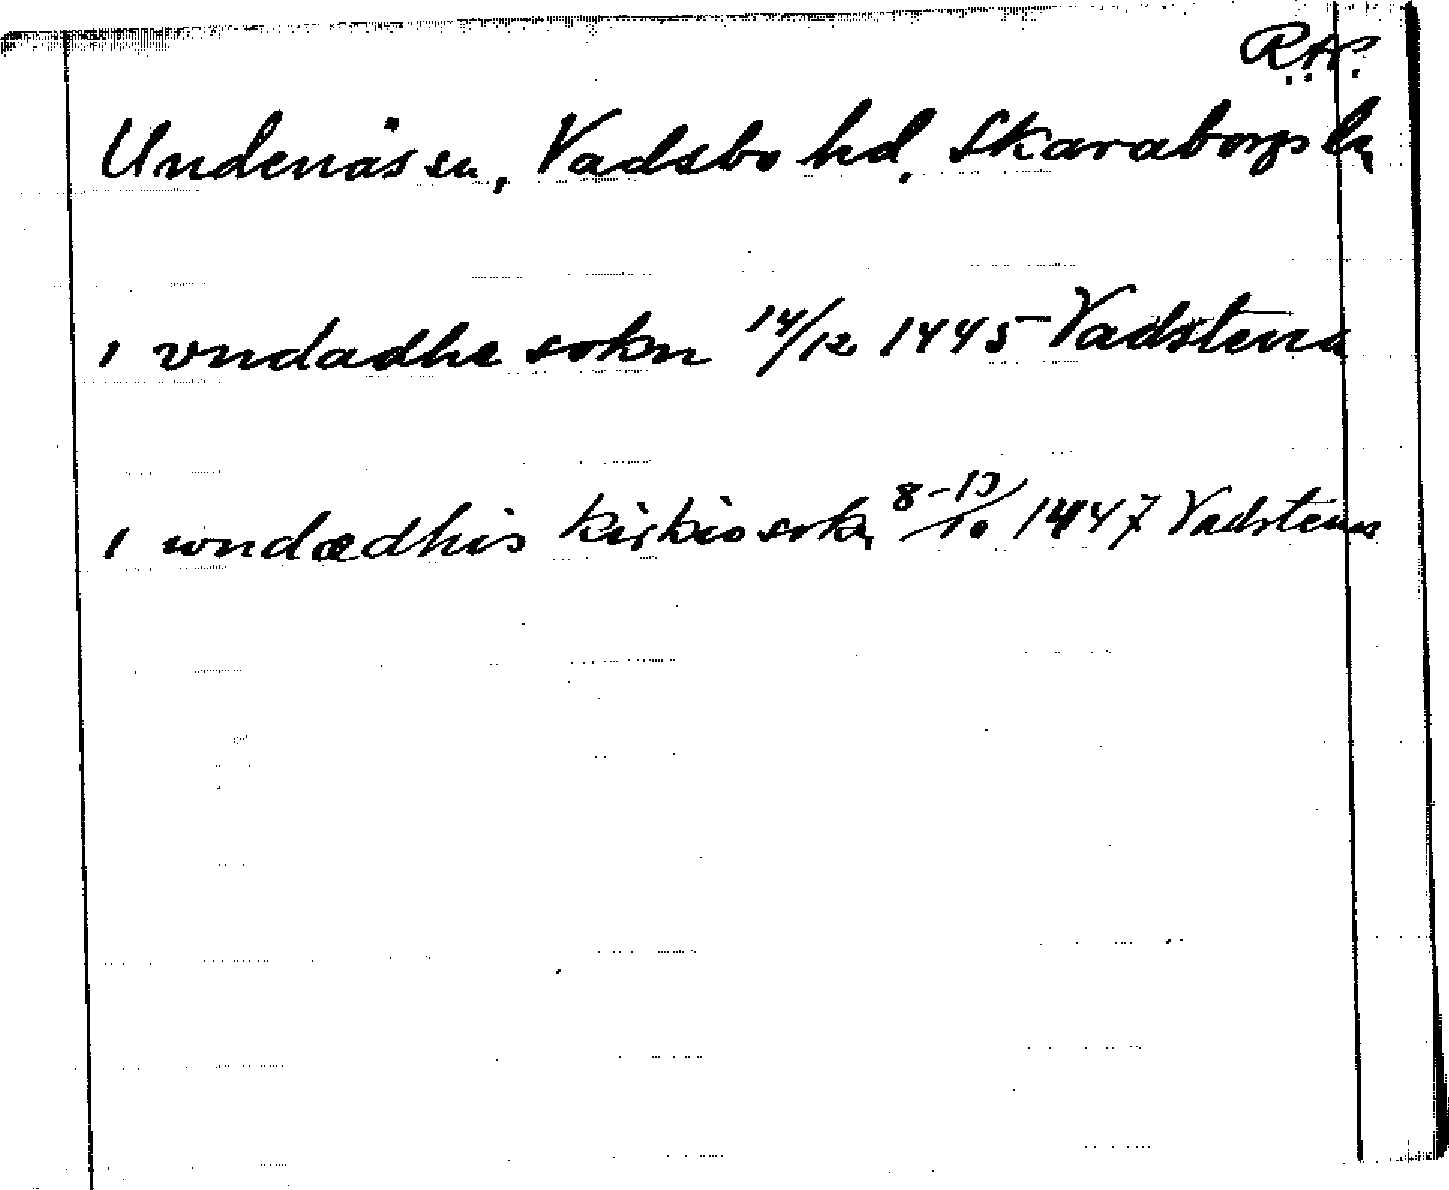 R.A.P.
Undenäs sn, Vadsbo hd, Skaraborgs ln
i vndadhe sokn 14/12 1445 Vadstena
i wndædhis kirkio sokn 8-13/10 1447 Vadstena